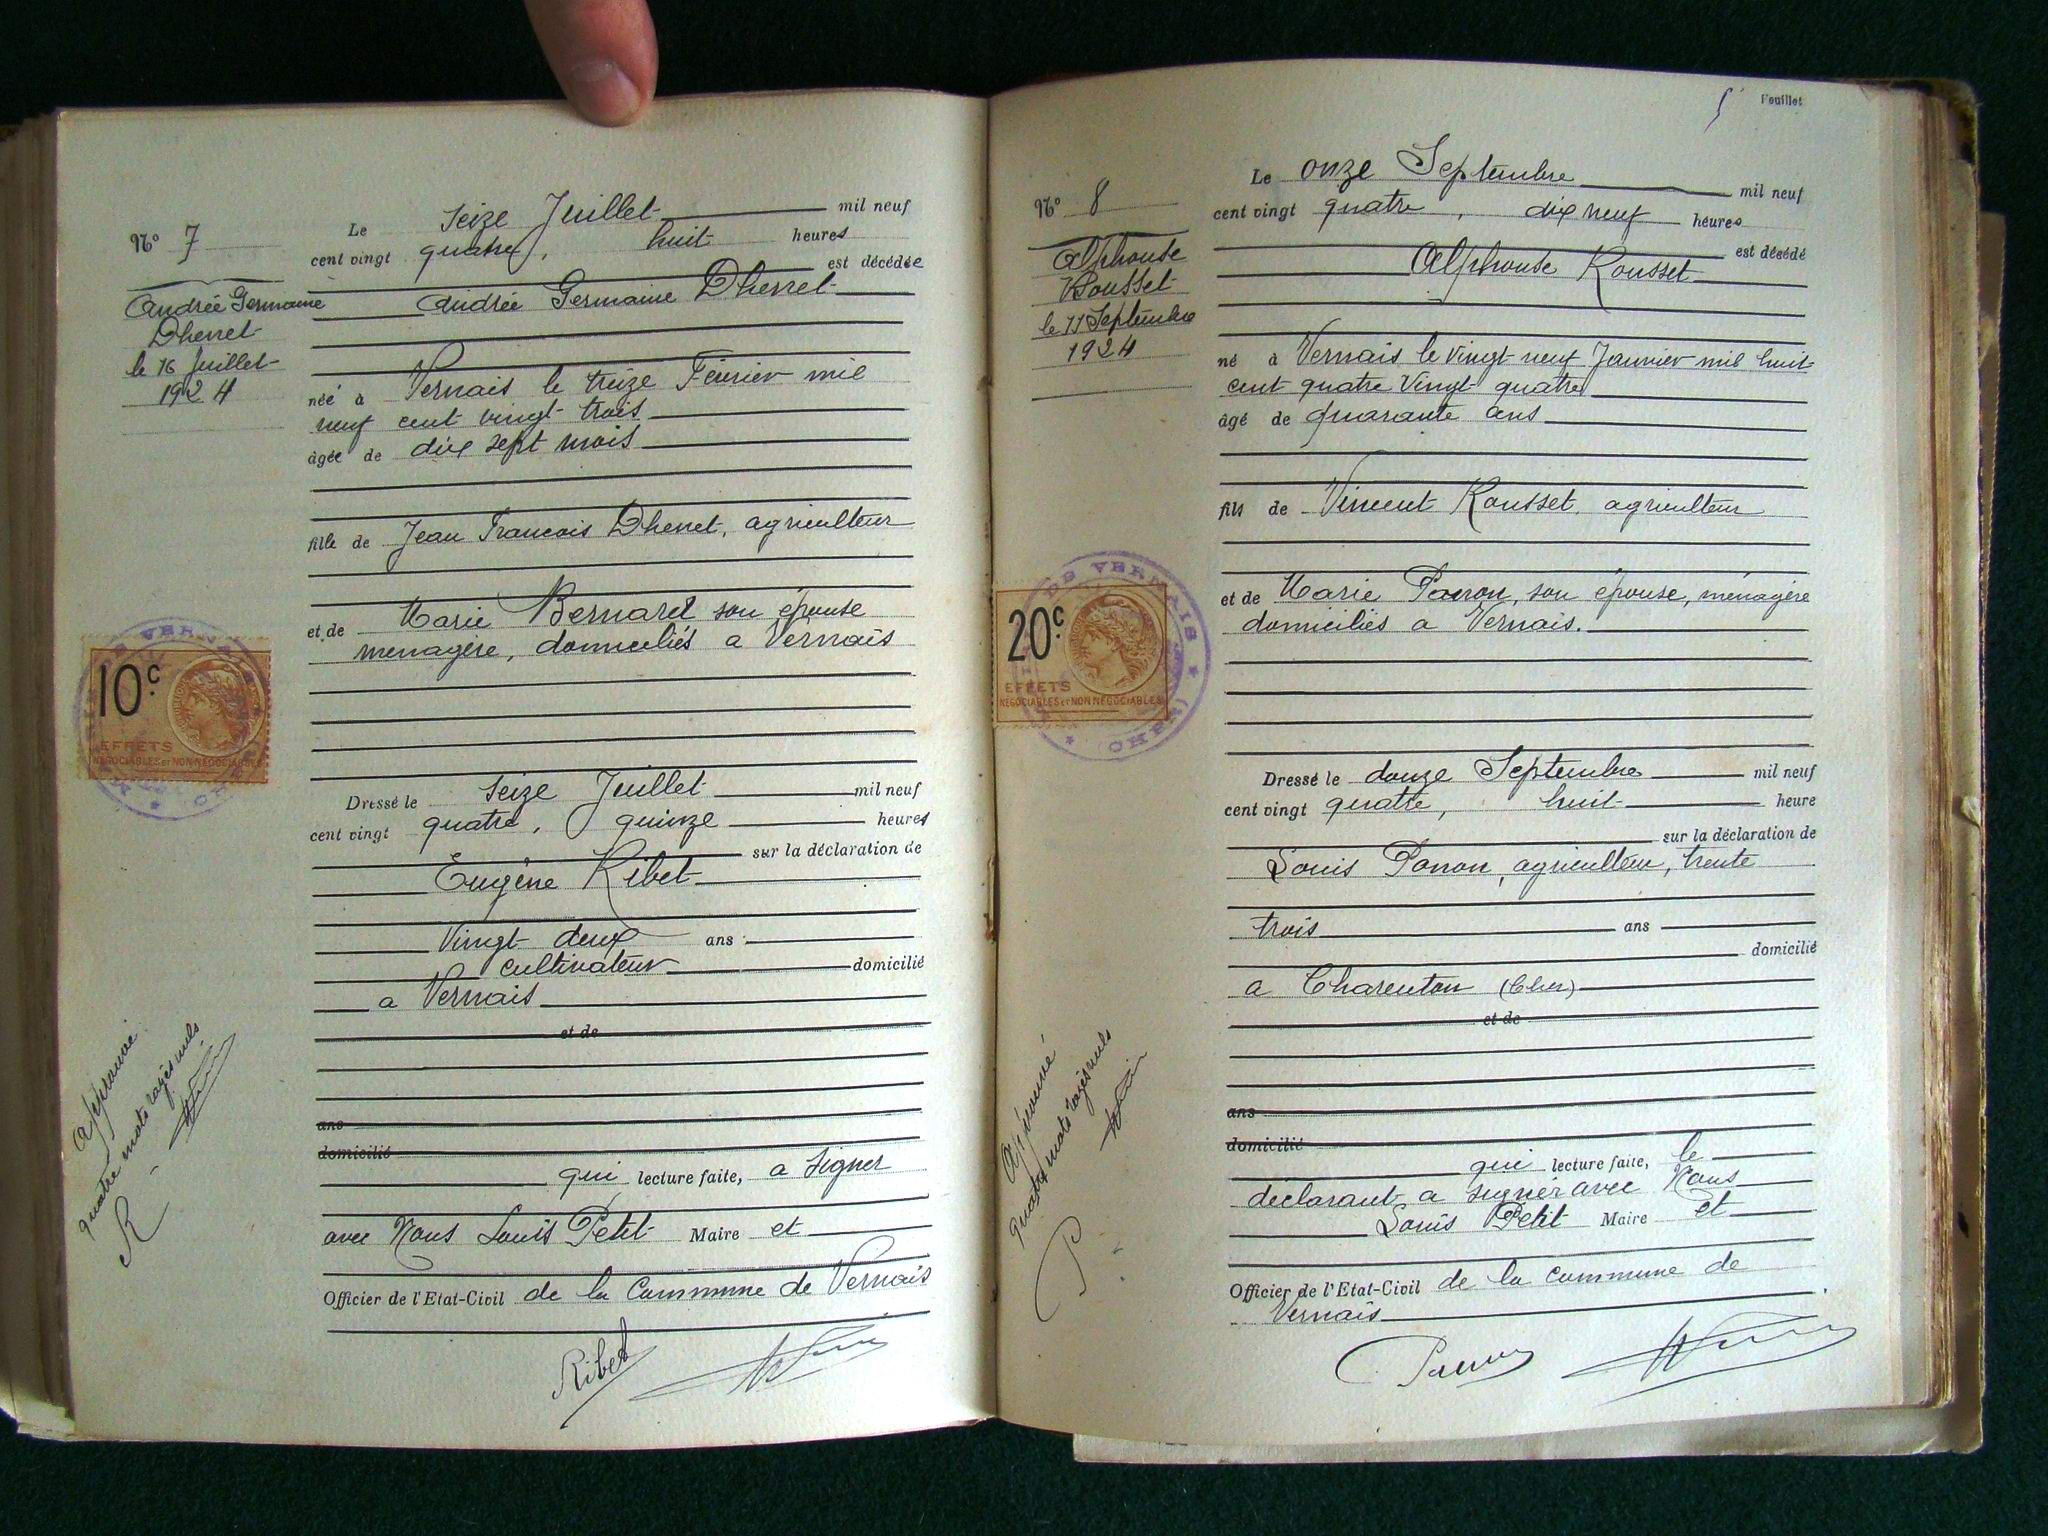 Nº 7
Andrée Germaine
Dhenet
le 16 Juillet
1924
Le seize Juillet mil neuf
cent vingt quatre, huit heures
est décédée
Andrée Germaine Dhenet
née à Vernais le treize Février mil
neuf cent vingt trois
âgée de dix sept mois
fille de Jean Francois Dhenet, agriculteur
et de Marie Bernard son épouse
ménagère, domiciliés a Vernais
10c
EFFETS
NÉGOCIABLES ET NON NÉGOCIABLES
Dressé le seize Juillet mil neuf
cent vingt quatre, quinze heures
sur la déclaration de
Eugène Ribet
Vingt deux ans
cultivateur domicilié
a Vernais
et de
ans
domicilié
qui lecture faite, a signer
avec Nous Louis Petit Maire et
Officier de l'Etat-Civil de la Commune de Vernais
Approuvé
quatre mots rayés nuls.
R
Ribet
5 Feuillet
Nº 8
Alphonse
Rousset
le 11 Septembre
1924
Le onze Septembre mil neuf
cent vingt quatre, dix neuf heures
est décédé
Alphonse Rousset
né à Vernais le vingt neuf Janvier mil huit
cent quatre Vingt quatre
âgé de quarante ans
fils de Vincent Rousset, agriculteur
et de Marie Panon, son épouse, ménagère
domiciliés a Vernais.
DE VERNAIS
(CHER)
20c
EFFETS
NÉGOCIABLES ET NON NÉGOCIABLES
Dressé le douze Septembre mil neuf
cent vingt quatre, huit heure
sur la déclaration de
Louis Panon, agriculteur, trente
trois ans
domicilié
a Charenton (Cher)
et de
ans
domicilié
qui lecture faite, le
déclarant a signer avec Nous
Louis Petit Maire et
Officier de l'Etat-Civil de la commune de
Vernais
Approuvé
quatre mots rayés nuls
P
Panon